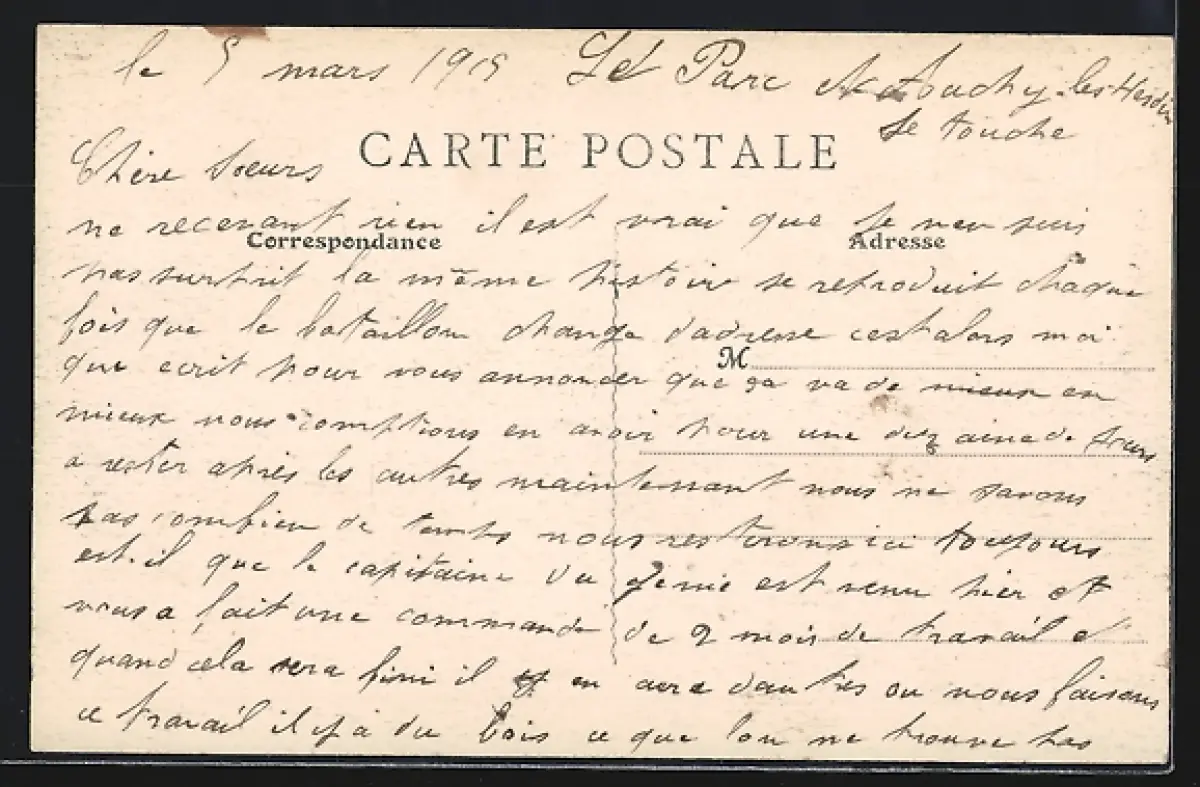 le 5 mars 1915 Le Parc et Auchy-les-Hesdin
se touche
CARTE POSTALE
Chère Soeurs
ne recevant rien il est vrai que je men suis
Correspondance Adresse
pas surprit la même histoire se reproduit chaque
fois que le bataillon change dadresse cest alors moi
M
que ecrit pour vous annoncer que ça va de mieux en
mieux nous comptions en avoir pour une dizaine de jours
a rester après les autres maintennant nous ne savons
pas combien de temps nous resterons ici toujours
est-il que le capitaine du Genie est venu hier et
nous a fait une commande de 2 mois de travail et
quand cela sera fini il y en aura dautres ou nous faisons
ce travail il y a du bois ce que lon ne trouve pas